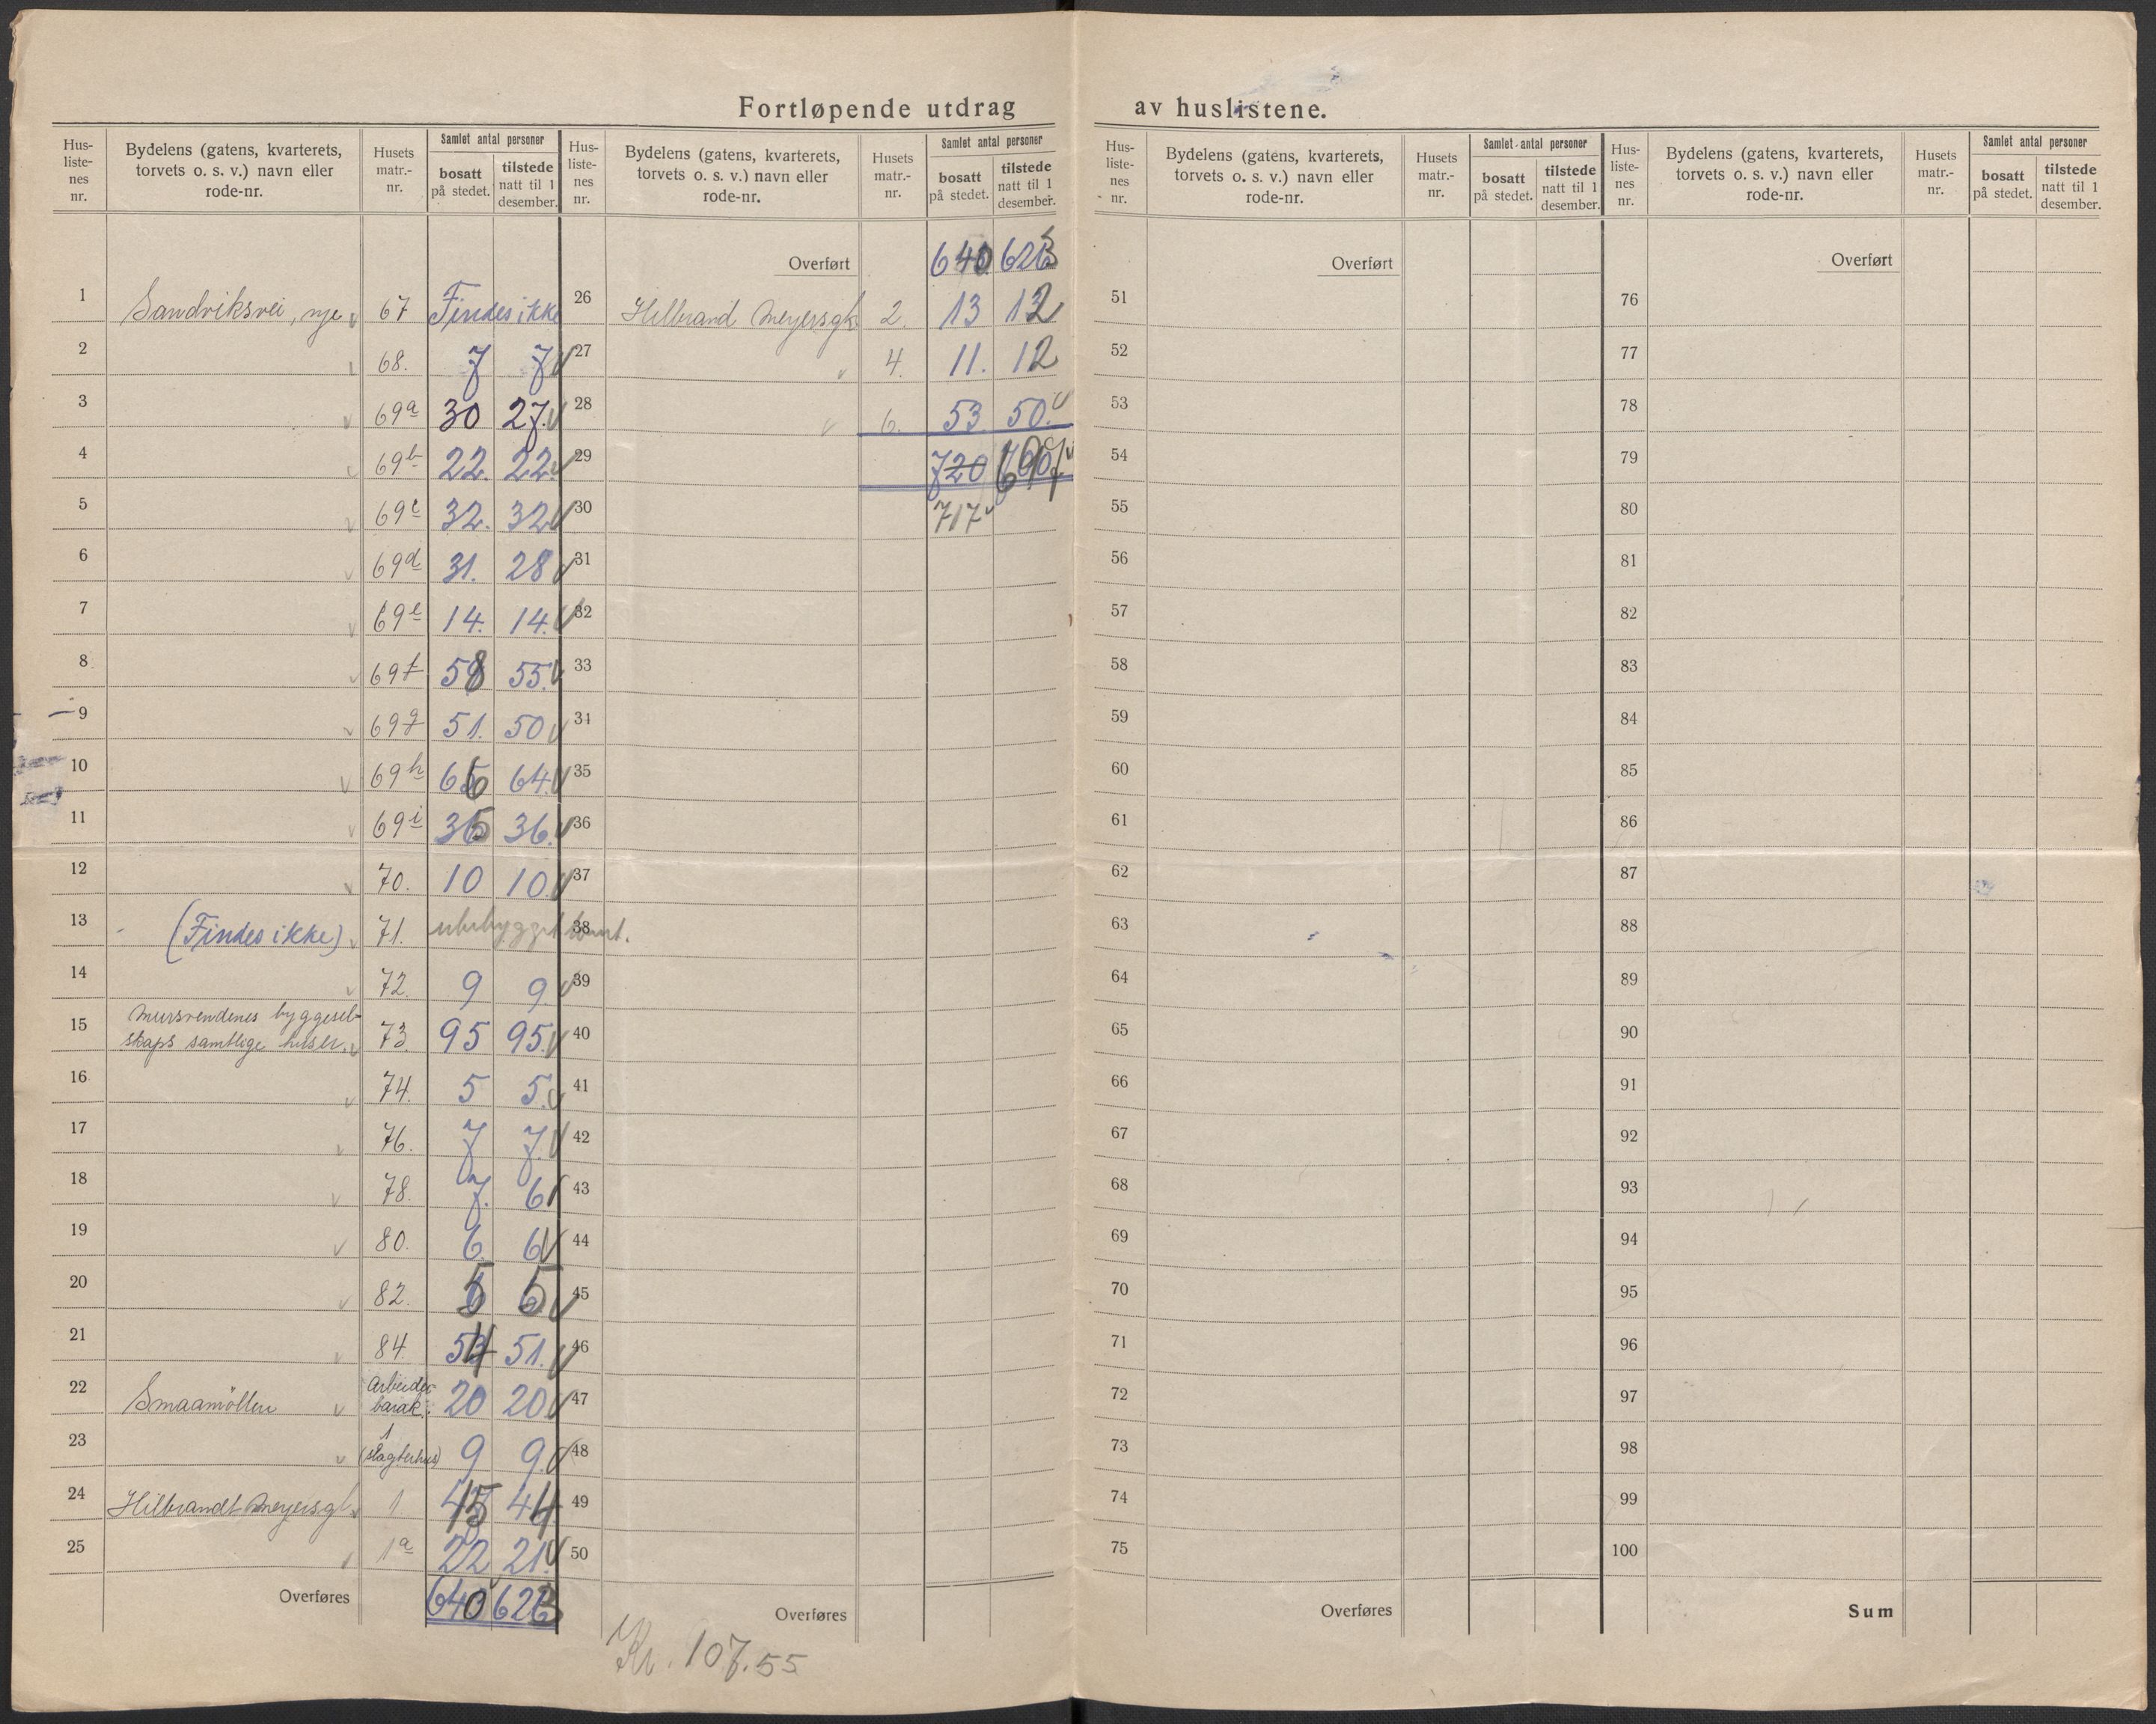 Fortløpende utdrag av huslistene.
Hus-liste-nes nr. | Bydelens (gatens, kvarterets, torvets o. s. v.) navn eller rode-nr. | Husets matr.-nr. | Samlet antal personer bosatt på stedet. | tilstede natt til 1 desember.
1 Sandviksvei, nye 67 Findes ikke
2 68. 7 7
3 69a 30 27.
4 69b 22. 22.
5 69c 32. 32
6 69d 31. 28
7 69e 14. 14.
8 69f 58 55.
9 69g 51. 50
10 69h 66 64.
11 69i 35 36.
12 70. 10 10.
13 (Findes ikke) 71. ubebygget tomt.
14 72. 9 9.
15 Mursvendenes byggesel-
skaps samtlige huser. 73. 95 95.
16 74. 5 5.
17 76. 7 7.
18 78. 7. 6
19 80. 6. 6
20 82. 5 5
21 84 54 51.
22 Smaamöllen Arbeider-
barak. 20 20
23 1
(slagterhus) 9 9.
24 Hilbrandt Meyersgt. 1 45 44
25 1a 22 21.
Overføres 640 623
Hus-liste-nes nr. | Bydelens (gatens, kvarterets, torvets o. s. v.) navn eller rode-nr. | Husets matr.-nr. | Samlet antal personer bosatt på stedet. | tilstede natt til 1 desember.
Overført 640 623
26 Hilbrand Meyersgt. 2. 13 12
27 4. 11. 12
28 6. 53. 50.
29 720 697
30 717
31
32
33
34
35
36
37
38
39
40
41
42
43
44
45
46
47
48
49
50
Overføres
Kr. 107.55
Hus-liste-nes nr. | Bydelens (gatens, kvarterets, torvets o. s. v.) navn eller rode-nr. | Husets matr.-nr. | Samlet antal personer bosatt på stedet. | tilstede natt til 1 desember.
Overført
51
52
53
54
55
56
57
58
59
60
61
62
63
64
65
66
67
68
69
70
71
72
73
74
75
Overføres
Hus-liste-nes nr. | Bydelens (gatens, kvarterets, torvets o. s. v.) navn eller rode-nr. | Husets matr.-nr. | Samlet antal personer bosatt på stedet. | tilstede natt til 1 desember.
Overført
76
77
78
79
80
81
82
83
84
85
86
87
88
89
90
91
92
93
94
95
96
97
98
99
100
Sum